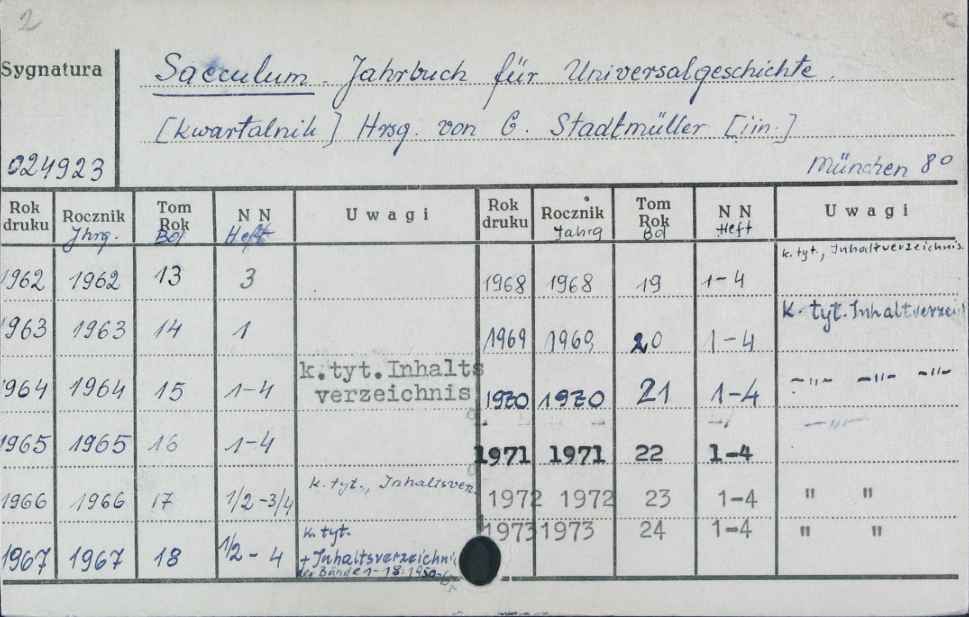 2
Sygnatura
Saeculum. Jahrbuch für Universalgeschichte.
[kwartalnik] Hrsg. von G. Stadtmüller [i in.]
024923
München 8°
Rok druku Rocznik Jhrg. Tom Rok Bd N N Heft Uwagi Rok druku Rocznik Jahrg Tom Rok Bd N N Heft Uwagi
1962 1962 13 3 1968 1968 19 1-4 k. tyt., Inhaltverzeichnis
1963 1963 14 1 1969 1969 20 1-4 k. tyt. Inhaltverzei
1964 1964 15 1-4 k.tyt.Inhalts verzeichnis 1970 1970 21 1-4 -"- -"- -"-
1965 1965 16 1-4 1971 1971 22 1-4 -"-
1966 1966 17 1/2-3/4 k. tyt., Inhaltsverz. 1972 1972 23 1-4 " "
1967 1967 18 1/2-4 k. tyt. 1973 1973 24 1-4 " "
+ Inhaltsverzeichni
der Bände 1-18:1950-